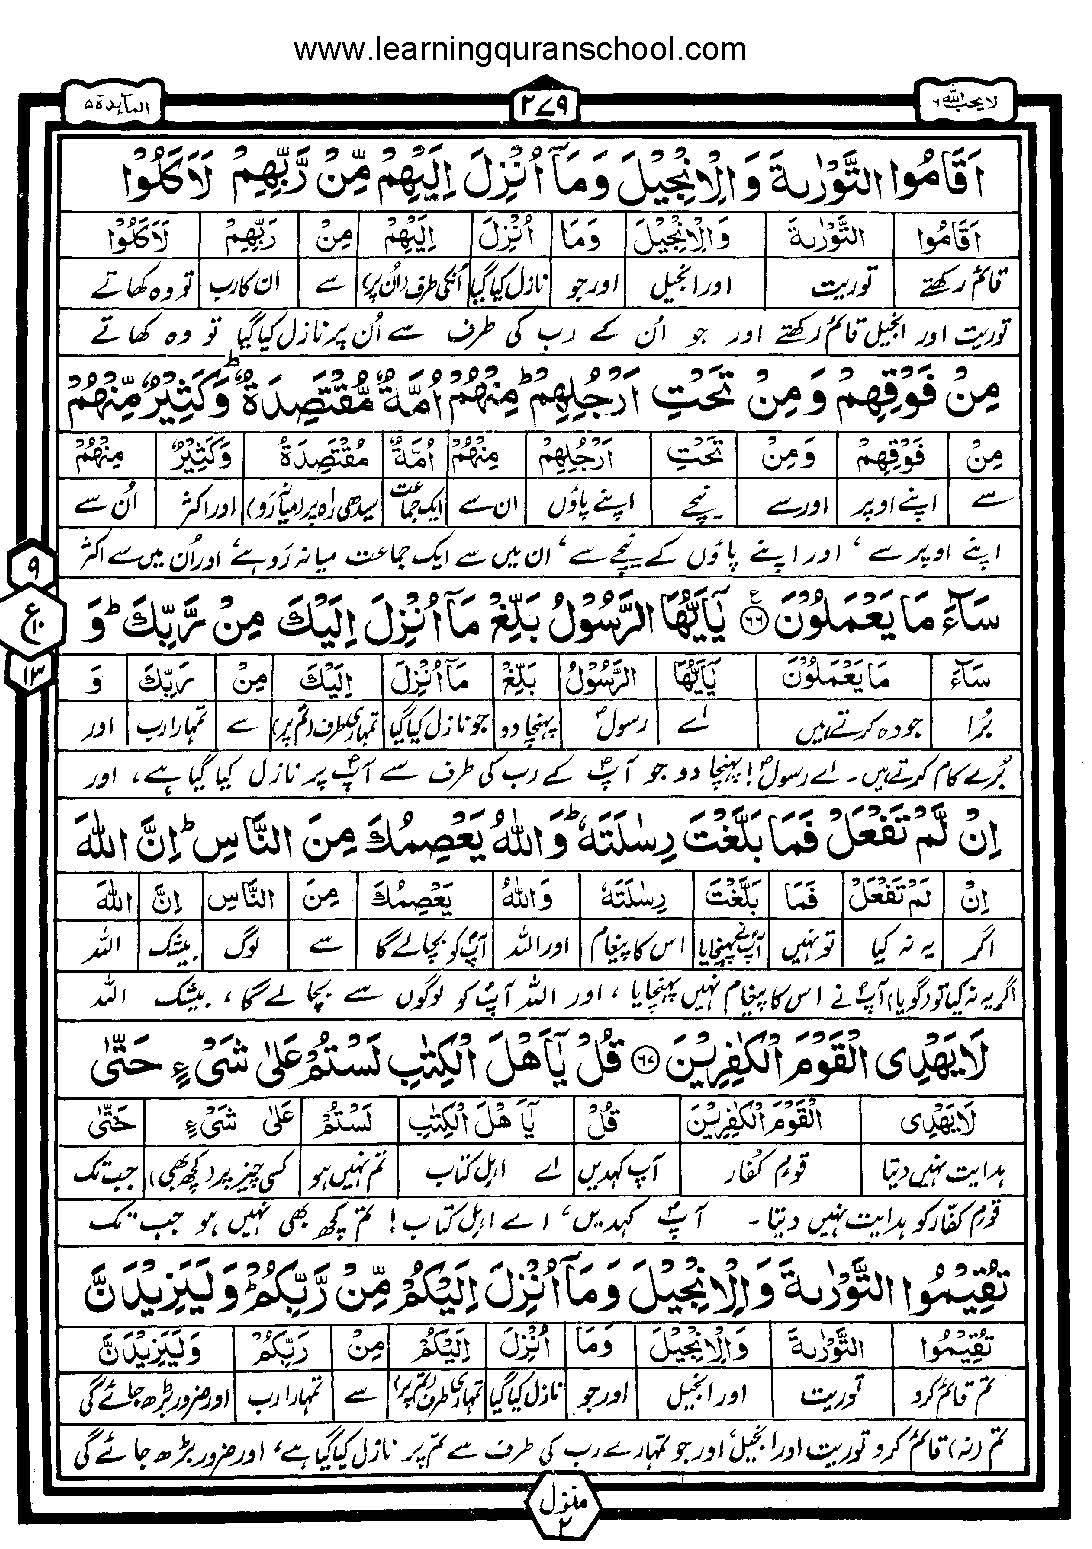 www.learningquranschool.com
لا یحب اللہ ۶
۲۷۹
المآئدۃ ۵
اَقَامُوا التَّوْرٰىةَ وَالْاِنْجِيْلَ وَمَاۤ اُنْزِلَ اِلَيْهِمْ مِّنْ رَّبِّهِمْ لَاَكَلُوْا
اَقَامُوا التَّوْرٰىةَ وَالْاِنْجِيْلَ وَمَا اُنْزِلَ اِلَيْهِمْ مِنْ رَبِّهِمْ لَاَكَلُوْا
قائم رکھتے توریت اور انجیل اور جو نازل کیا گیا انکی طرف (اُن پر) سے ان کا رب تو وہ کھاتے
توریت اور انجیل قائم رکھتے اور جو اُن کے رب کی طرف سے اُن پر نازل کیا گیا تو وہ کھاتے
مِنْ فَوْقِهِمْ وَمِنْ تَحْتِ اَرْجُلِهِمْ ؕ مِنْهُمْ اُمَّةٌ مُّقْتَصِدَةٌ ؕ وَكَثِيْرٌ مِّنْهُمْ
مِنْ فَوْقِهِمْ وَمِنْ تَحْتِ اَرْجُلِهِمْ مِنْهُمْ اُمَّةٌ مُقْتَصِدَةٌ وَكَثِيْرٌ مِنْهُمْ
سے اپنے اوپر اور سے نیچے اپنے پاؤں ان سے ایک جماعت سیدھی راہ پر (میانہ رَو) اور اکثر اُن سے
اپنے اوپر سے ، اور اپنے پاؤں کے نیچے سے ، ان میں سے ایک جماعت میانہ رَو ہے ، اور اُن میں سے اکثر
۹
ع
۱۰
۱۳
سَآءَ مَا يَعْمَلُوْنَ ۶۶ يٰۤاَيُّهَا الرَّسُوْلُ بَلِّغْ مَاۤ اُنْزِلَ اِلَيْكَ مِنْ رَّبِّكَ ؕ وَ
سَآءَ مَا يَعْمَلُوْنَ يٰۤاَيُّهَا الرَّسُوْلُ بَلِّغْ مَاۤ اُنْزِلَ اِلَيْكَ مِنْ رَبِّكَ وَ
بُرا جو وہ کرتے ہیں اے رسولؐ پہنچا دو جو نازل کیا گیا تمہاری طرف (تم پر) سے تمہارا رب اور
بُرے کام کرتے ہیں۔ اے رسولؐ! پہنچا دو جو آپؐ کے رب کی طرف سے آپؐ پر نازل کیا گیا ہے ، اور
اِنْ لَّمْ تَفْعَلْ فَمَا بَلَّغْتَ رِسٰلَتَهٗ ؕ وَاللّٰهُ يَعْصِمُكَ مِنَ النَّاسِ ؕ اِنَّ اللّٰهَ
اِنْ لَمْ تَفْعَلْ فَمَا بَلَّغْتَ رِسٰلَتَهٗ وَاللّٰهُ يَعْصِمُكَ مِنَ النَّاسِ اِنَّ اللّٰهَ
اگر یہ نہ کیا تو نہیں آپؐ نے پہنچایا اس کا پیغام اور اللہ آپؐ کو بچالے گا سے لوگ بیشک اللہ
اگر یہ نہ کیا تو (گویا) آپؐ نے اس کا پیغام نہیں پہنچایا ، اور اللہ آپؐ کو لوگوں سے بچالے گا ، بیشک اللہ
لَا يَهْدِى الْقَوْمَ الْكٰفِرِيْنَ ۶۷ قُلْ يٰۤاَهْلَ الْكِتٰبِ لَسْتُمْ عَلٰى شَيْءٍ حَتّٰى
لَا يَهْدِى الْقَوْمَ الْكٰفِرِيْنَ قُلْ يٰۤاَهْلَ الْكِتٰبِ لَسْتُمْ عَلٰى شَيْءٍ حَتّٰى
ہدایت نہیں دیتا قومِ کفّار آپ کہدیں اے اہلِ کتاب تم نہیں ہو کسی چیز پر (کچھ بھی) جب تک
قومِ کفّار کو ہدایت نہیں دیتا۔ آپؐ کہدیں ، اے اہلِ کتاب! تم کچھ بھی نہیں ہو جب تک
تُقِيْمُوا التَّوْرٰىةَ وَالْاِنْجِيْلَ وَمَاۤ اُنْزِلَ اِلَيْكُمْ مِّنْ رَّبِّكُمْ ؕ وَلَيَزِيْدَنَّ
تُقِيْمُوا التَّوْرٰىةَ وَالْاِنْجِيْلَ وَمَا اُنْزِلَ اِلَيْكُمْ مِنْ رَبِّكُمْ وَلَيَزِيْدَنَّ
تم قائم کرو توریت اور انجیل اور جو نازل کیا گیا تمہاری طرف (تم پر) سے تمہارا رب اور ضرور بڑھ جائے گی
تم (نہ) قائم کرو توریت اور انجیل ، اور جو تمہارے رب کی طرف سے تم پر نازل کیا گیا ہے ، اور ضرور بڑھ جائے گی
منزل
۲